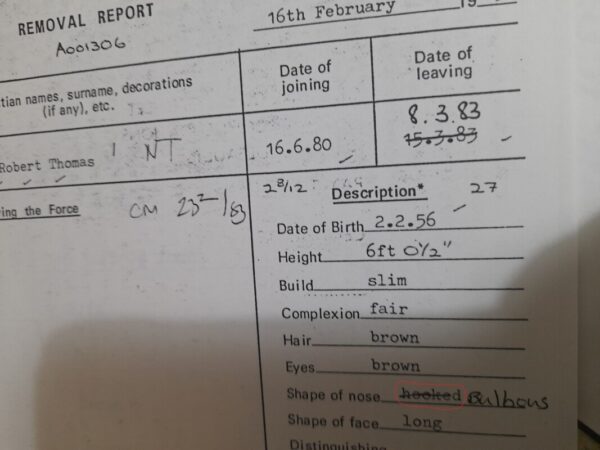 REMOVAL REPORT
16th February 19
A001306
tian names, surname, decorations
(if any), etc.
Date of
joining
Date of
leaving
Robert Thomas NT
16.6.80
8.3.83
15.3.83
ing the Force
CM
28/12
Description*
27
Date of Birth 2.2.56
Height 6ft 0½"
Build slim
Complexion fair
Hair brown
Eyes brown
Shape of nose hooked Bulbous
Shape of face long
Distinguishing